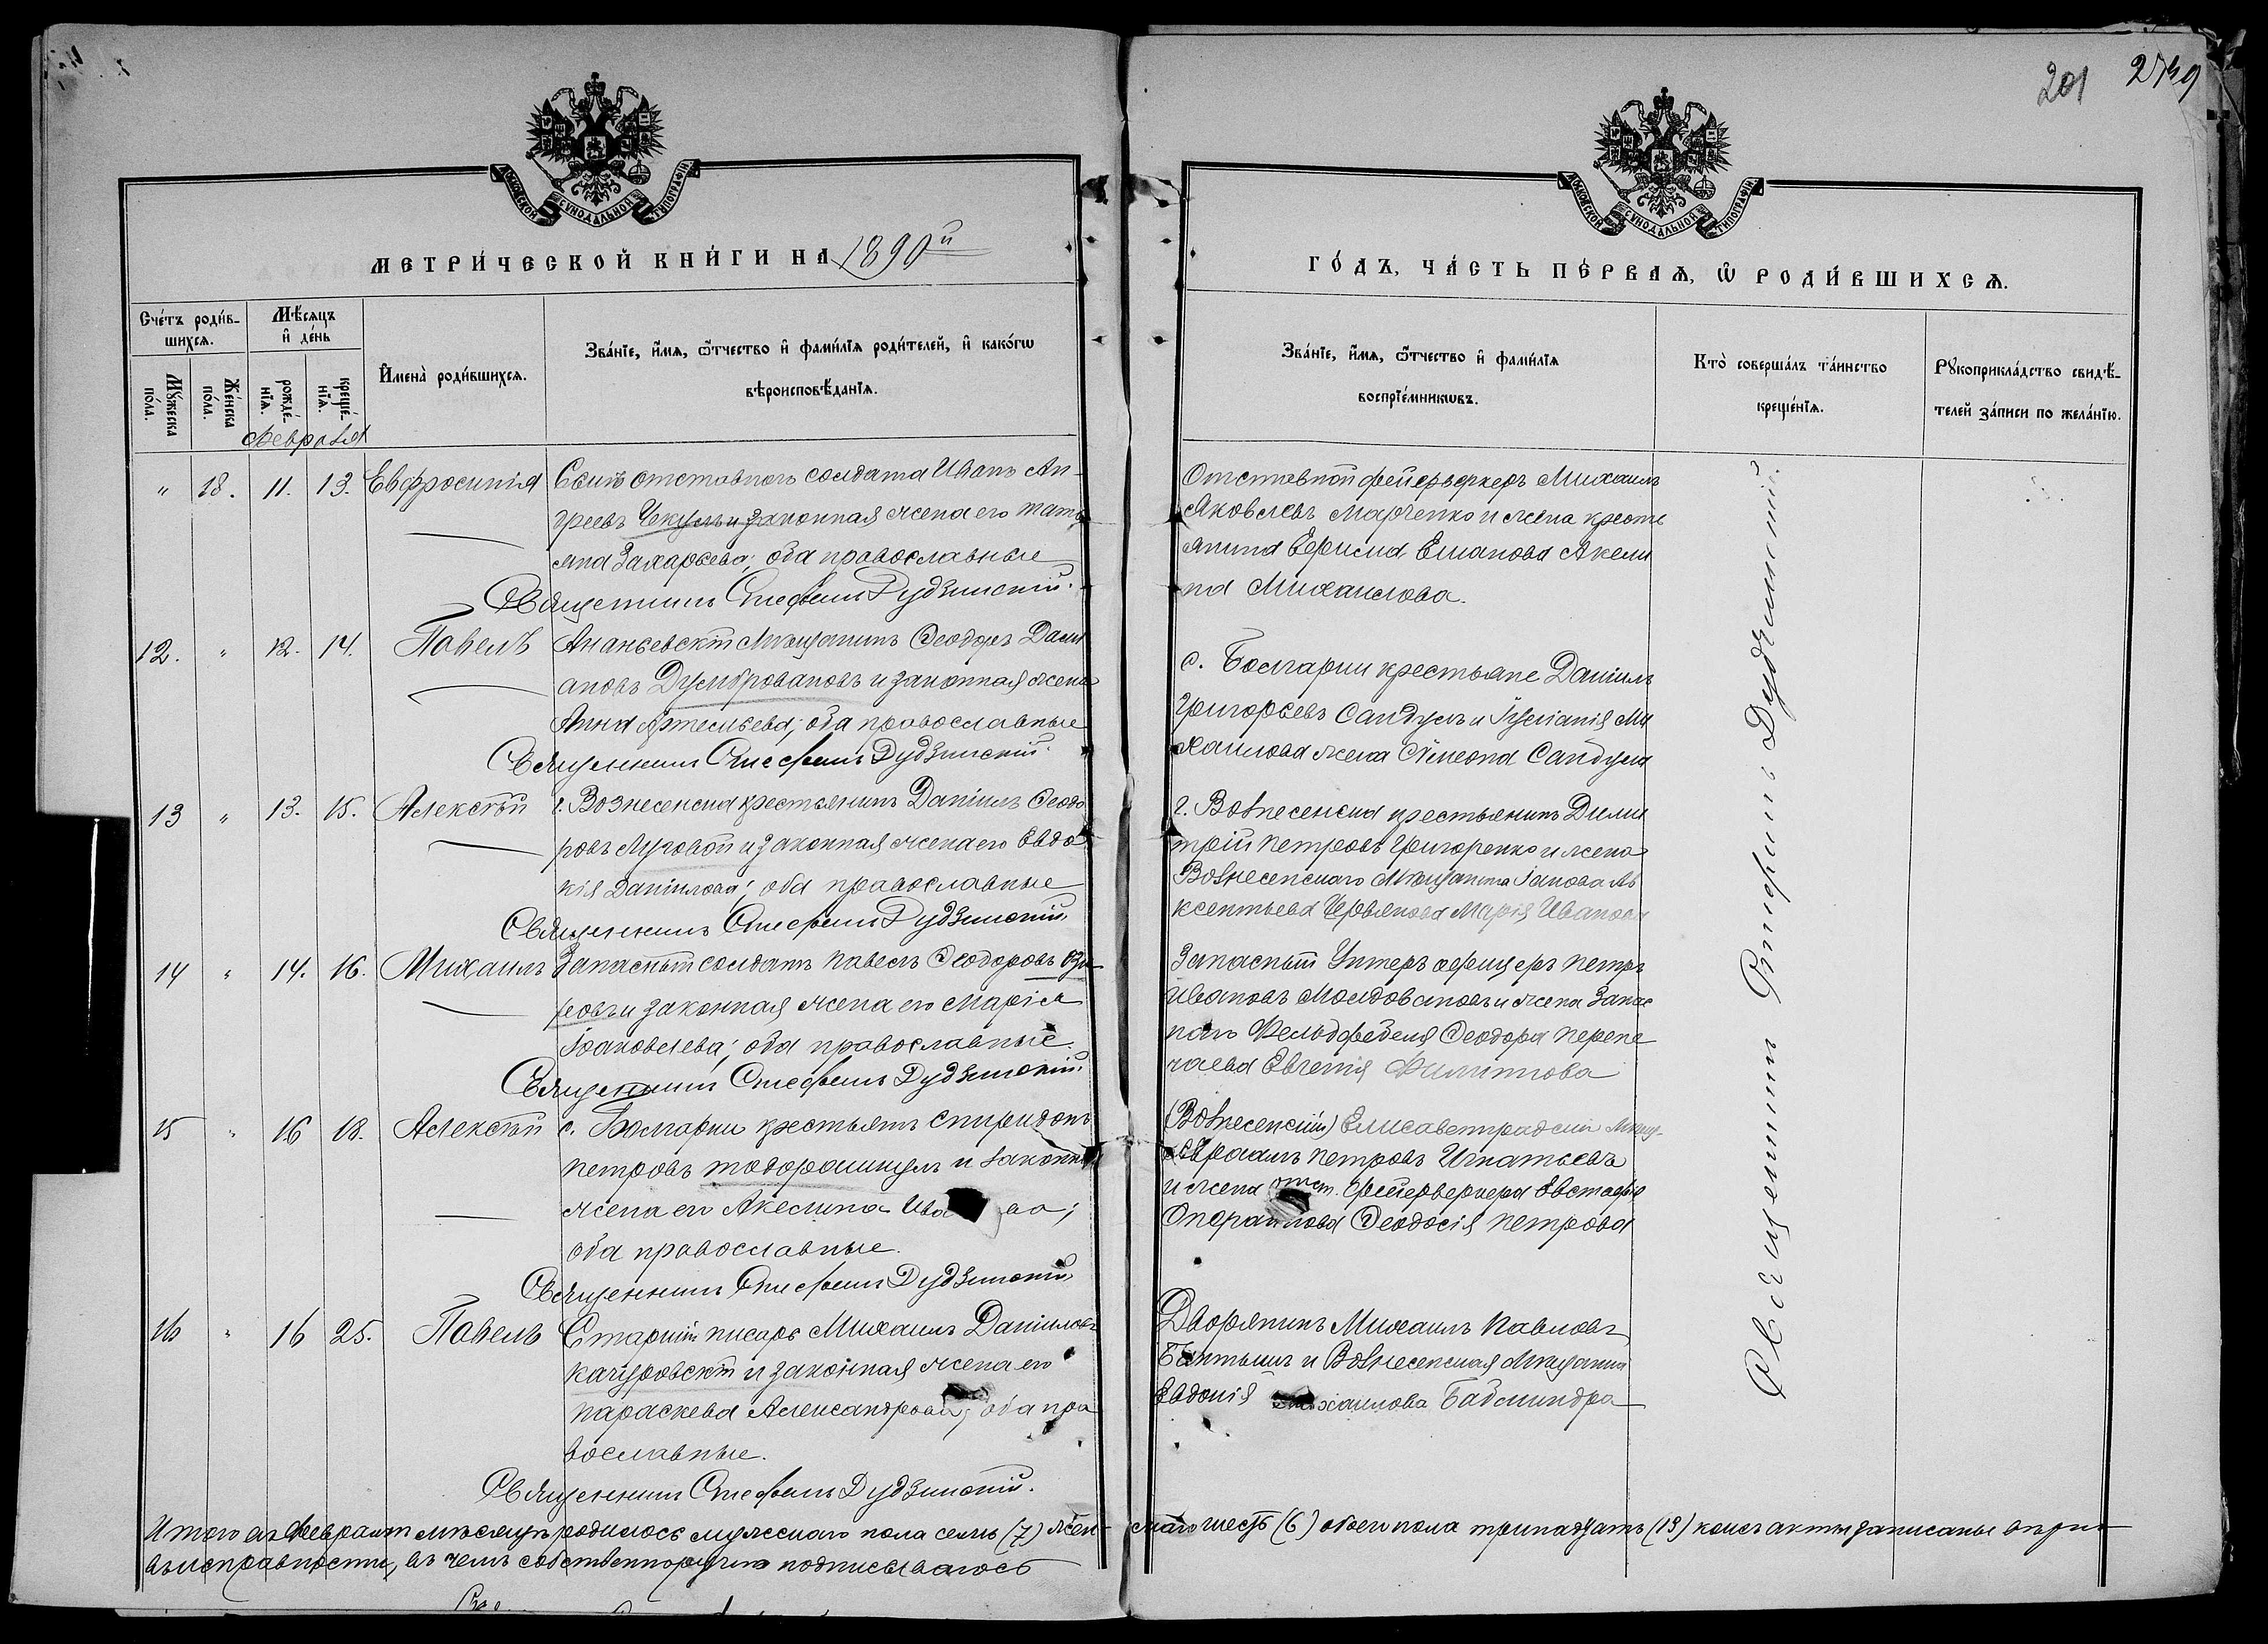 201 2749
МОСКОВСКОЙ СѴНОДАЛЬНОЙ ТИПОГРАФІИ
МОСКОВСКОЙ СѴНОДАЛЬНОЙ ТИПОГРАФІИ
МЕТРИ́ЧЕСКОЙ КНИ́ГИ НА 1890й
ГО́ДЪ, ЧА́СТЬ ПЕ́РВАѦ, Ѡ҆ РОДИ́ВШИХСѦ.
Сче́тъ роди́в-
шихсѧ.
Мѣ́сѧцъ
и҆ де́нь
Мꙋ́жеска
по́ла.
Же́нска
по́ла.
рожде́-
нїѧ.
креще́-
нїѧ.
Февраля
И҆мена̀ роди́вшихсѧ.
Зва́нїе, и҆́мѧ, ѻ҆́тчество и҆ фами́лїѧ роди́телей, и҆ како́гѡ
вѣроисповѣ́данїѧ.
Зва́нїе, и҆́мѧ, ѻ҆́тчество и҆ фами́лїѧ
воспрїе́мникѡвъ.
Кто̀ соверша́лъ та́инство
креще́нїѧ.
Рꙋкоприкла́дство свидѣ́-
телей за́писи по жела́нїю.
" 18. 11. 13. Евфросинія
отставного солдата Иванъ Ан-
дреевъ Чекулъ и законная жена его Тать
яна Захарьева; оба православные
Священникъ Стефанъ Дудзинскій.
Отставной фейерверкеръ Михаилъ
Яковлевъ Марченко и жена кресть
янина Ефима Еманова Акели
на Михаилова.
12. " 12. 14. Павелъ
Ананьевскій Мѣщанинъ Ѳеодоръ Дами
ановъ Думбровановъ и законная жена
Анна Артемьева; оба православные
Священникъ Стефанъ Дудзинскій.
с. Болгарки крестьяне Даніилъ
Григорьевъ Сандулъ и Іуліанія Ми
хаилова жена Сѵмеона Сандула
13 " 13. 15. Алексѣй
г. Вознесенска крестьянинъ Даніилъ Ѳеодо
ровъ Луговой и законная жена его Евдо
кія Даніилова; оба православные
Священникъ Стефанъ Дудзинскій
г. Вознесенска крестьянинъ Дими
трій Петровъ Григоренко и жена
Вознесенскаго Мѣщанина Іакова Ав
ксентьева Червякова Марія Иванова
14 " 14. 16. Михаилъ
Запасный солдатъ Павелъ Ѳеодоровъ
ровъ и законная жена его Марія
Іаковлева; оба православные.
Священникъ Стефанъ Дудзинскій
Запасный Унтеръ офицеръ Петръ
Ивановъ Молдовановъ и жена Запас
наго Фельдфебеля Ѳеодора Перепе
чаева Евгенія Филиппова
15 " 16 18. Алексѣй
с. Болгарки крестьянъ Спиридонъ
Петровъ Тодорашкулъ и законная
жена его Акелина
оба православные.
Священникъ Стефанъ Дудзинскій
(Вознесенскій) Елисаветградскій Мѣщ-
Авраамъ Петровъ Игнатьевъ
и жена отст. фейерверкера Евстафія
Ѳеодосія Петрова
16 " 16 25. Павелъ
Старшій писарь Михаилъ Даніиловъ
Качуровскій и законная жена его
Параскева Александрова; оба пра
вославные.
Священникъ Стефанъ Дудзинскій.
Дворянинъ Михаилъ Павловъ
Бантышъ и Вознесенская Мѣщанка
Евдокія Михаилова
Священникъ Стефанъ Дудзинскій
Итого въ Февралѣ мѣсяцѣ родилось мужескаго пола семь (7) жен-
скаго шесть (6) обоего пола тринадцать (13) коихъ акты записаны
въ исправности, въ чемъ собственноручно подписываюсь